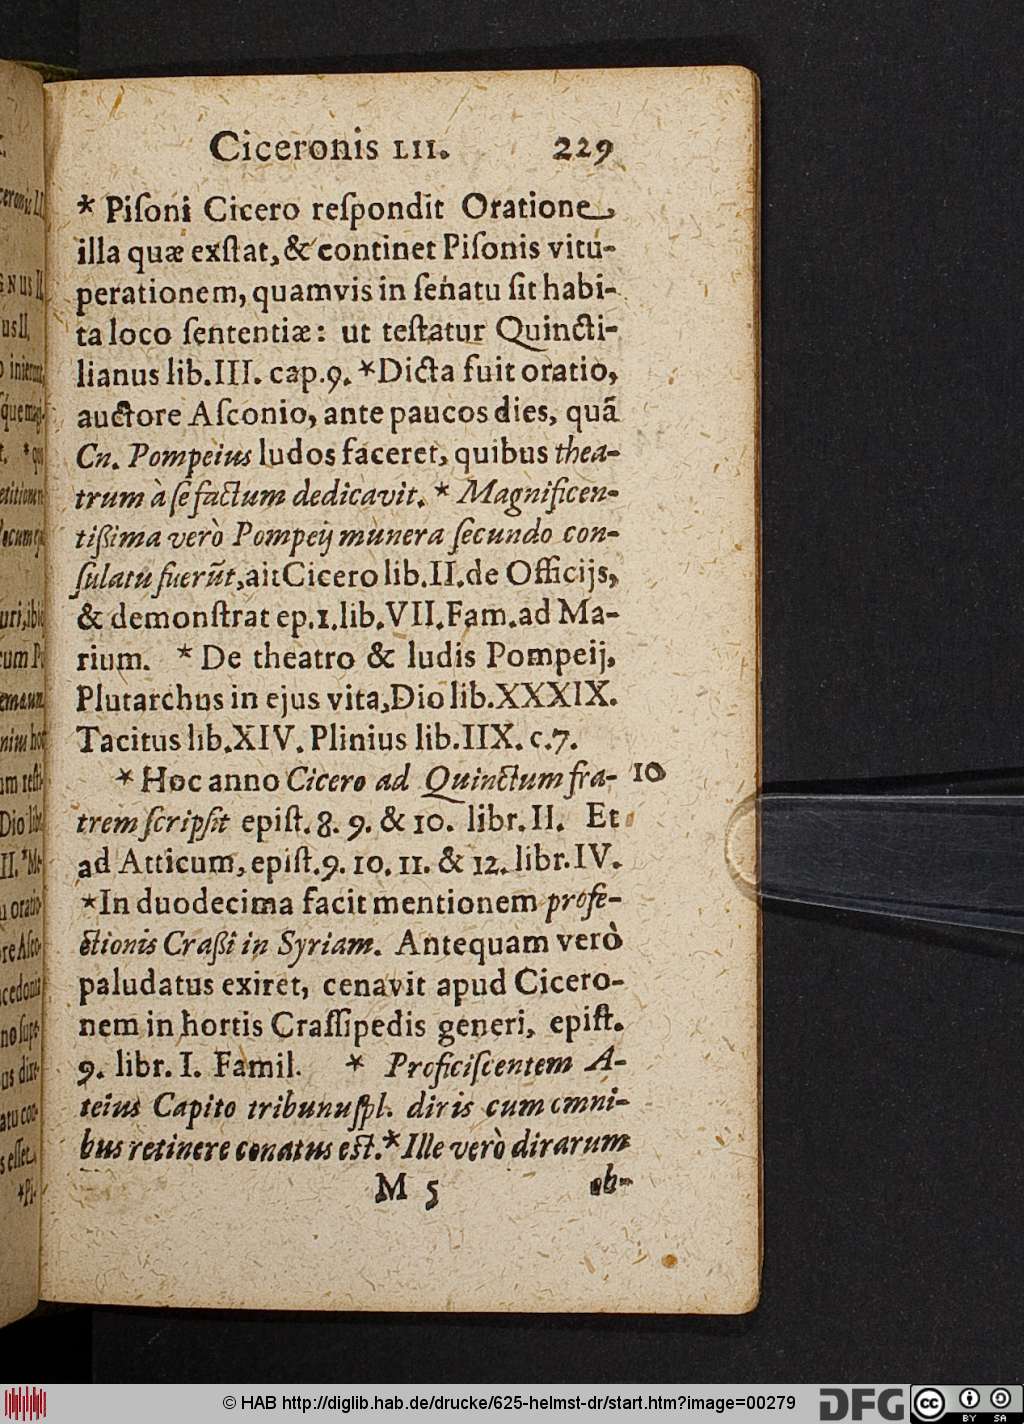 Ciceronis LII. 229
* Piſoni Cicero reſpondit Oratione
illa quæ exſtat, & continet Piſonis vitu-
perationem, quamvis in ſenatu ſit habi-
ta loco ſententiæ: ut teſtatur Quincti-
lianus lib. III. cap. 9. * Dicta fuit oratio,
auctore Aſconio, ante paucos dies, quã
Cn. Pompeius ludos faceret, quibus thea-
trum à ſe factum dedicavit. * Magnificen-
tißima verò Pompeij munera ſecundo con-
ſulatu fuerũt, ait Cicero lib. II. de Officijs,
& demonſtrat ep. 1. lib. VII. Fam. ad Ma-
rium. * De theatro & ludis Pompeij,
Plutarchus in ejus vita, Dio lib. XXXIX.
Tacitus lib. XIV. Plinius lib. IIX. c. 7.
* Hoc anno Cicero ad Quinctum fra- 10
trem ſcripſit epiſt. 8. 9. & 10. libr. II. Et
ad Atticum, epiſt. 9. 10. 11. & 12. libr. IV.
* In duodecima facit mentionem profe-
ctionis Craßi in Syriam. Antequam verò
paludatus exiret, cenavit apud Cicero-
nem in hortis Craſſipedis generi, epiſt.
9. libr. I. Famil. * Proficiſcentem A-
teius Capito tribunuſpl. diris cum omni-
bus retinere conatus eſt. * Ille verò dirarum
M 5 ob-
© HAB http://diglib.hab.de/drucke/625-helmst-dr/start.htm?image=00279
DFG
cc BY SA